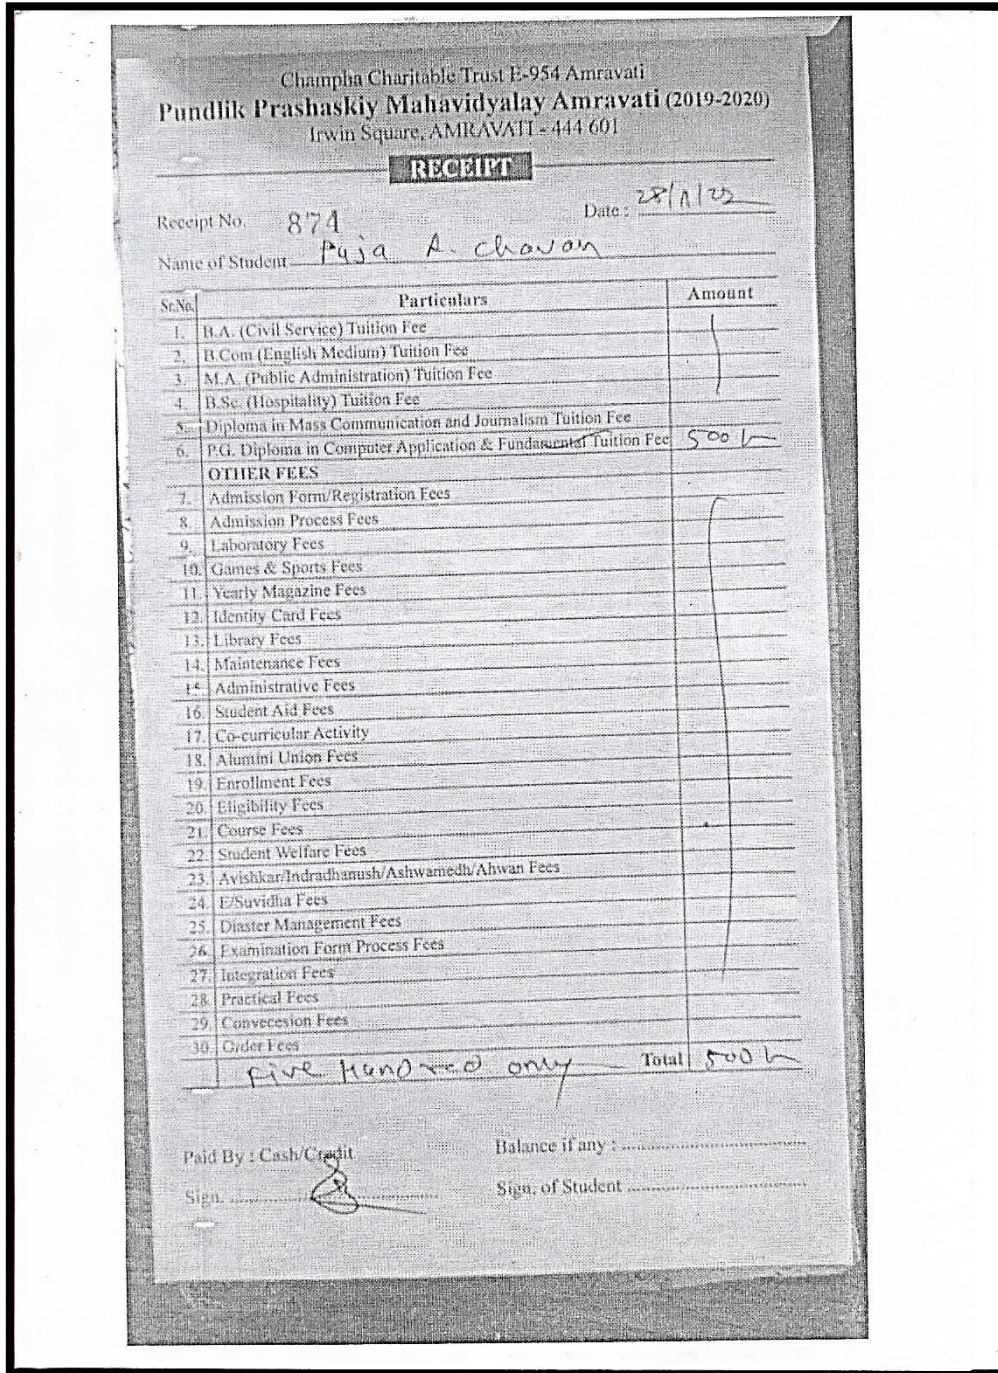 Champha Charitable Trust E-954 Amravati
Pundlik Prashaskiy Mahavidyalay Amravati (2019-2020)
Irwin Square, AMRAVATI - 444 601
RECEIPT
Receipt No. 874 Date :
Name of Student Puja A. Chavan
Sr.No. Particulars Amount
1. B.A. (Civil Service) Tuition Fee
2. B.Com (English Medium) Tuition Fee
3. M.A. (Public Administration) Tuition Fee
4. B.Sc. (Hospitality) Tuition Fee
5. Diploma in Mass Communication and Journalism Tuition Fee
6. P.G. Diploma in Computer Application & Fundamental Tuition Fee 500/-
OTHER FEES
7. Admission Form/Registration Fees
8. Admission Process Fees
9. Laboratory Fees
10. Games & Sports Fees
11. Yearly Magazine Fees
12. Identity Card Fees
13. Library Fees
14. Maintenance Fees
15. Administrative Fees
16. Student Aid Fees
17. Co-curricular Activity
18. Alumini Union Fees
19. Enrollment Fees
20. Eligibility Fees
21. Course Fees
22. Student Welfare Fees
23. Avishkar/Indradhanush/Ashwamedh/Ahwan Fees
24. E/Suvidha Fees
25. Diaster Management Fees
26. Examination Form Process Fees
27. Integration Fees
28. Practical Fees
29. Convecesion Fees
30. Order Fees
Five Hundred only Total 500/-
Paid By : Cash/Credit Balance if any :
Sign. Sign. of Student